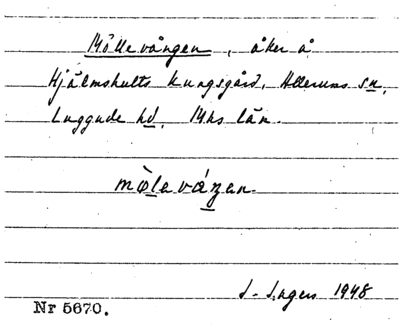 Möllevången, åker å
Hjälmshults Kungsgård, Allerums sn,
Luggude hd, Mhs län.
mölevåŋen.
1948
Nr 5670.